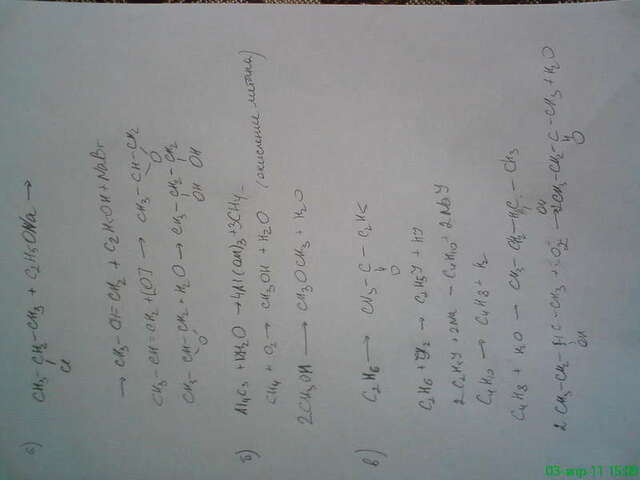 а) CH3-CH2-CH3 + C2H5ONa →
Cl
→ CH3-CH=CH2 + C2H5OH + NaBr
CH3-CH=CH2 + [O] → CH3-CH-CH2
O
CH3-CH-CH2 + H2O → CH3-CH2-CH2
O OH OH
б) Al4C3 + H2O → 4Al(OH)3 + 3CH4
CH4 + O2 → CH3OH + H2O (окисление метана)
2CH3OH → CH3OCH3 + H2O
в) C2H6 → CH3-C-C2H5
O
C2H6 + Y2 → C2H5Y + HY
2C2H5Y + 2Na → C4H10 + 2NaY
C4H10 → C4H8 + H2
C4H8 + H2O → CH3-CH2-HC-CH3
OH
2CH3-CH2-HC-CH3 + O2 → 2CH3-CH2-C-CH3 + H2O
OH O
03-апр-11 15:09